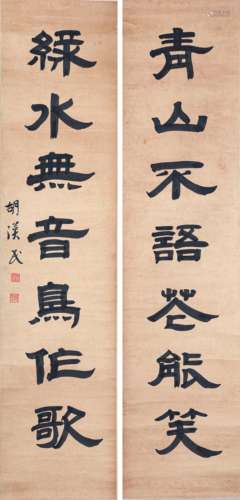 青山不語花能笑
綠水無音鳥作歌
胡漢民